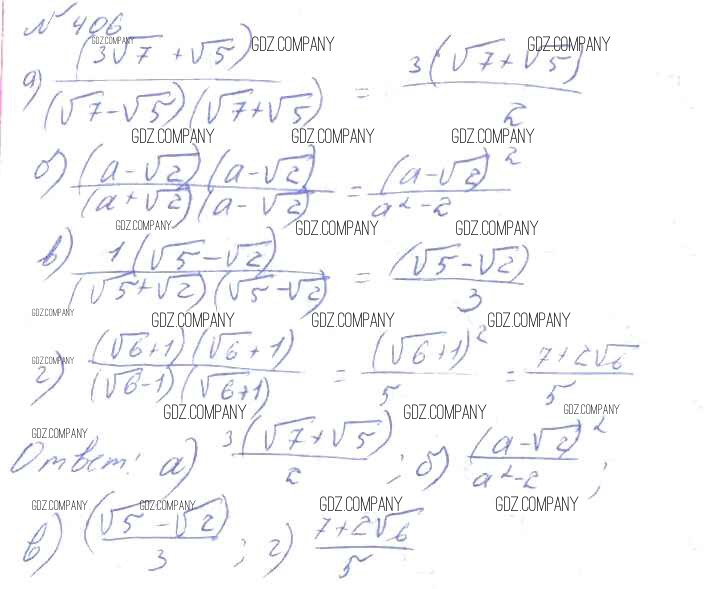 № 406
а) (3√7 + √5) / (√7-√5)(√7+√5) = 3(√7+√5) / 2
б) (a-√2)(a-√2) / (a+√2)(a-√2) = (a-√2)² / a²-2
в) 1(√5-√2) / (√5+√2)(√5-√2) = (√5-√2) / 3
г) (√6+1)(√6+1) / (√6-1)(√6+1) = (√6+1)² / 5 = 7+2√6 / 5
Ответ: а) 3(√7+√5) / 2 ; б) (a-√2)² / a²-2 ;
в) (√5-√2) / 3 ; г) 7+2√6 / 5
GDZ.COMPANY GDZ.COMPANY GDZ.COMPANY
GDZ.COMPANY GDZ.COMPANY GDZ.COMPANY
GDZ.COMPANY GDZ.COMPANY GDZ.COMPANY
GDZ.COMPANY GDZ.COMPANY GDZ.COMPANY GDZ.COMPANY
GDZ.COMPANY
GDZ.COMPANY GDZ.COMPANY GDZ.COMPANY
GDZ.COMPANY
GDZ.COMPANY GDZ.COMPANY GDZ.COMPANY GDZ.COMPANY